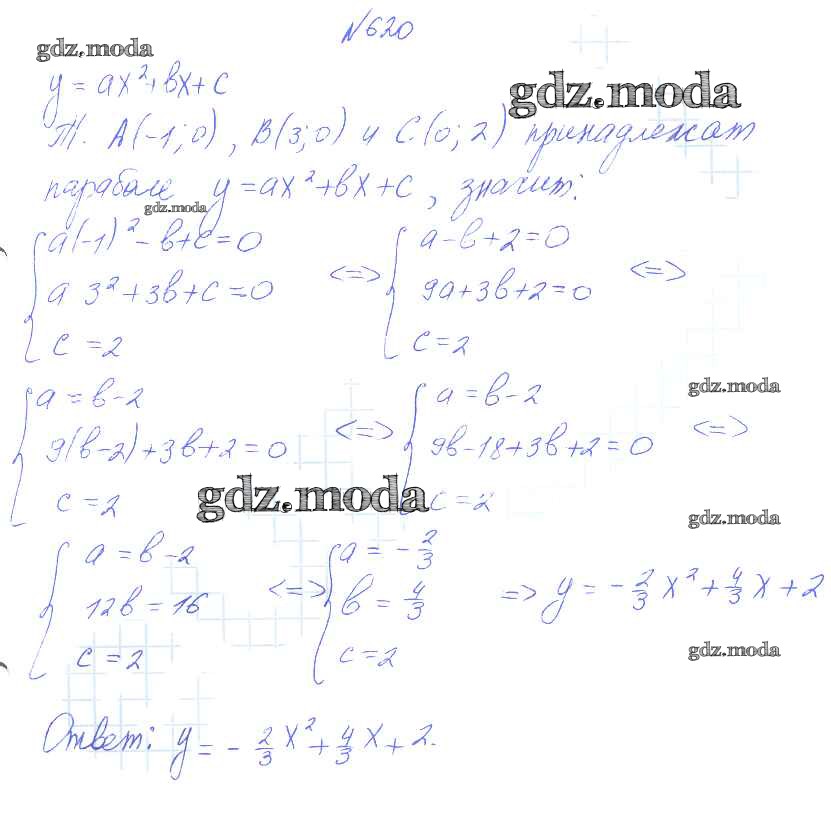 №620
gdz.moda
y = ax² + bx + c
gdz.moda
Т. A(-1; 0), B(3; 0) и C(0; 2) принадлежат
параболе y = ax² + bx + c, значит:
gdz.moda
{ a(-1)² - b + c = 0 <=> { a - b + 2 = 0 <=>
a 3² + 3b + c = 0 9a + 3b + 2 = 0
c = 2 c = 2
gdz.moda
{ a = b - 2 <=> { a = b - 2 <=>
9(b - 2) + 3b + 2 = 0 9b - 18 + 3b + 2 = 0
c = 2 c = 2
gdz.moda
gdz.moda
{ a = b - 2 <=> { a = -2/3 => y = -2/3 x² + 4/3 x + 2
12b = 16 b = 4/3
c = 2 c = 2
gdz.moda
Ответ: y = -2/3 x² + 4/3 x + 2.